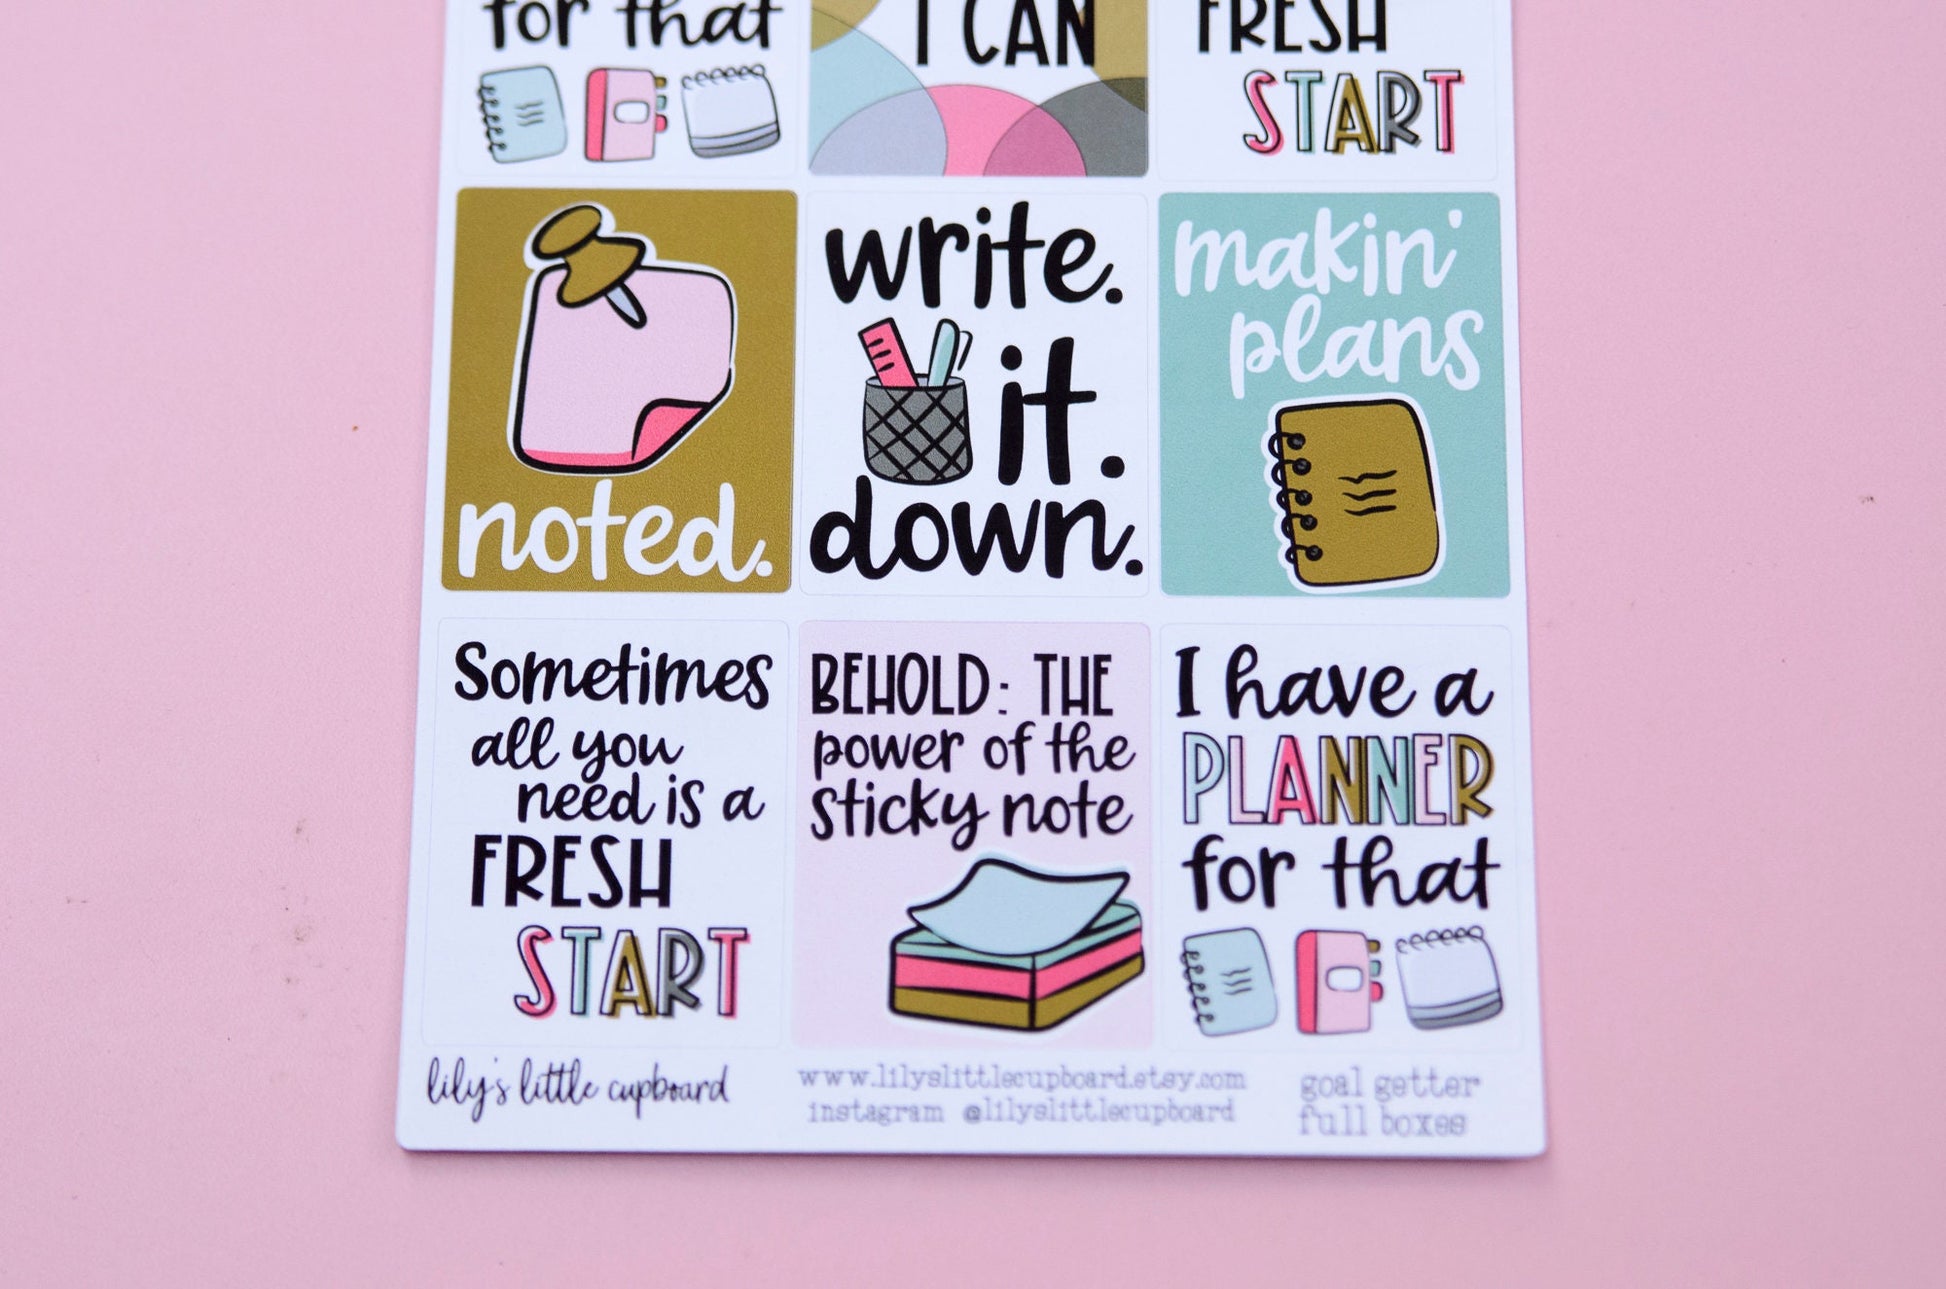 for that
I CAN
FRESH
START
noted.
write.
it.
down.
makin'
plans
Sometimes
all you
need is a
FRESH
START
BEHOLD: THE
power of the
sticky note
I have a
PLANNER
for that
lily's little cupboard
www.lilyslittlecupboard.etsy.com
instagram @lilyslittlecupboard
goal getter
full boxes